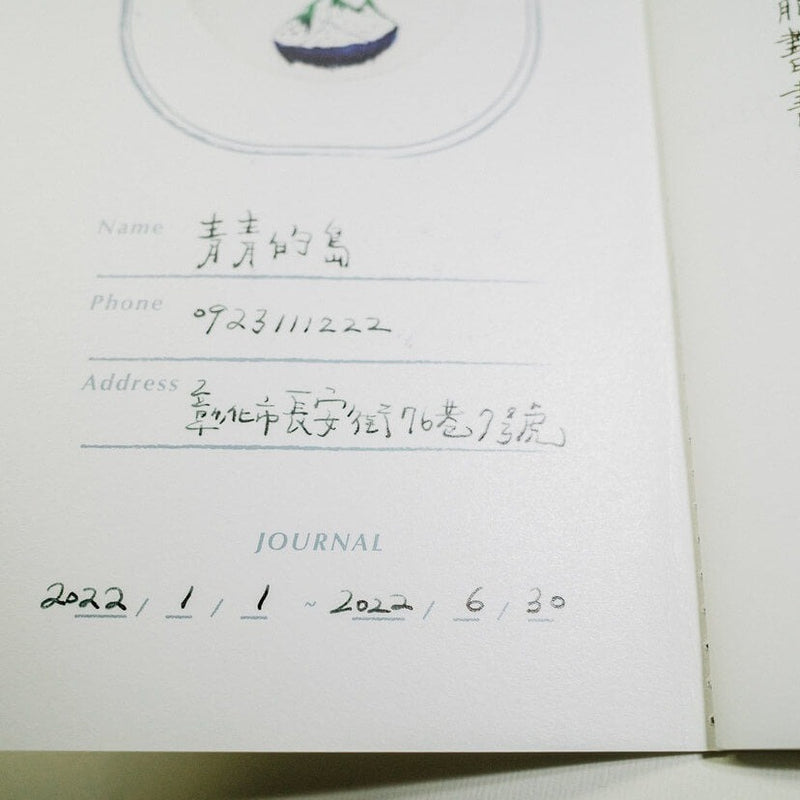 Name 青青的島
Phone 0923111222
Address 彰化市長安街76巷7號
JOURNAL
2022 / 1 / 1 ~ 2022 / 6 / 30